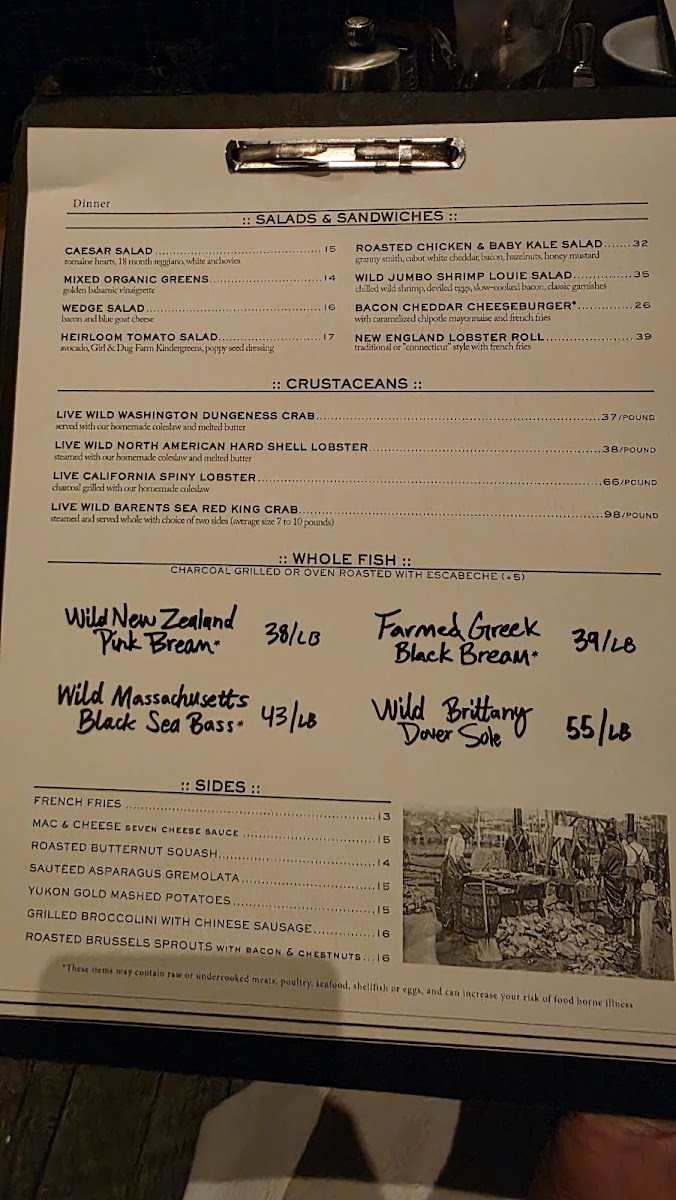 Dinner
:: SALADS & SANDWICHES ::
CAESAR SALAD 15
romaine hearts, 18 month reggiano, white anchovies
MIXED ORGANIC GREENS 14
golden balsamic vinaigrette
WEDGE SALAD 16
bacon and blue goat cheese
HEIRLOOM TOMATO SALAD 17
avocado, Girl & Dug Farm Kindergreens, poppy seed dressing
ROASTED CHICKEN & BABY KALE SALAD 32
granny smith, cabot white cheddar, bacon, hazelnuts, honey mustard
WILD JUMBO SHRIMP LOUIE SALAD 35
chilled wild shrimp, deviled eggs, slow-cooked bacon, classic garnishes
BACON CHEDDAR CHEESEBURGER* 26
with caramelized chipotle mayonnaise and french fries
NEW ENGLAND LOBSTER ROLL 39
traditional or "connecticut" style with french fries
:: CRUSTACEANS ::
LIVE WILD WASHINGTON DUNGENESS CRAB 37/POUND
served with our homemade coleslaw and melted butter
LIVE WILD NORTH AMERICAN HARD SHELL LOBSTER 38/POUND
steamed with our homemade coleslaw and melted butter
LIVE CALIFORNIA SPINY LOBSTER 66/POUND
charcoal grilled with our homemade coleslaw
LIVE WILD BARENTS SEA RED KING CRAB 98/POUND
steamed and served whole with choice of two sides (average size 7 to 10 pounds)
:: WHOLE FISH ::
CHARCOAL GRILLED OR OVEN ROASTED WITH ESCABECHE (+5)
Wild New Zealand
Pink Bream* 38/LB
Farmed Greek
Black Bream* 39/LB
Wild Massachusetts
Black Sea Bass* 43/LB
Wild Brittany
Dover Sole 55/LB
:: SIDES ::
FRENCH FRIES 13
MAC & CHEESE SEVEN CHEESE SAUCE 15
ROASTED BUTTERNUT SQUASH 14
SAUTÉED ASPARAGUS GREMOLATA 15
YUKON GOLD MASHED POTATOES 15
GRILLED BROCCOLINI WITH CHINESE SAUSAGE 16
ROASTED BRUSSELS SPROUTS WITH BACON & CHESTNUTS 16
*These items may contain raw or undercooked meats, poultry, seafood, shellfish or eggs, and can increase your risk of food borne illness